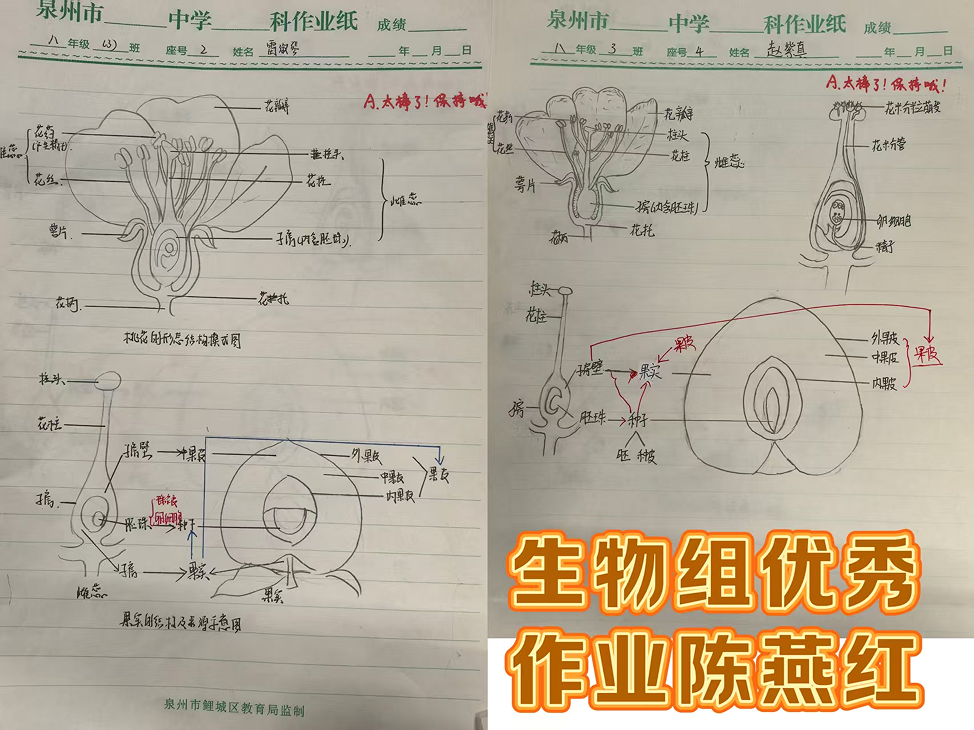 泉州市____中学____科作业纸 成绩____
八 年级 (3) 班 座号 2 姓名 ____年__月__日
A.太棒了！保持哦！
花瓣
花药
柱头
雄蕊
花丝
花柱
雌蕊
萼片
子房(内含胚珠)
花柄
花托
桃花的形态结构模式图
柱头
花柱
子房壁
果皮
外果皮
中果皮
果皮
内果皮
子房
胚珠
种子
子房
果实
雌蕊
果实
泉州市鲤城区教育局监制
泉州市____中学____科作业纸 成绩____
八 年级 3 班 座号 4 姓名 赵紫真 ____年__月__日
A.太棒了！保持哦！
花药
花瓣
柱头
花丝
花柱
雌蕊
萼片
子房(内含胚珠)
花托
花柄
花粉粒萌发
花粉管
卵细胞
精子
柱头
花柱
果皮
外果皮
中果皮
果皮
内果皮
子房壁
果实
子房
胚珠
种子
胚 种皮
生物组优秀
作业陈燕红